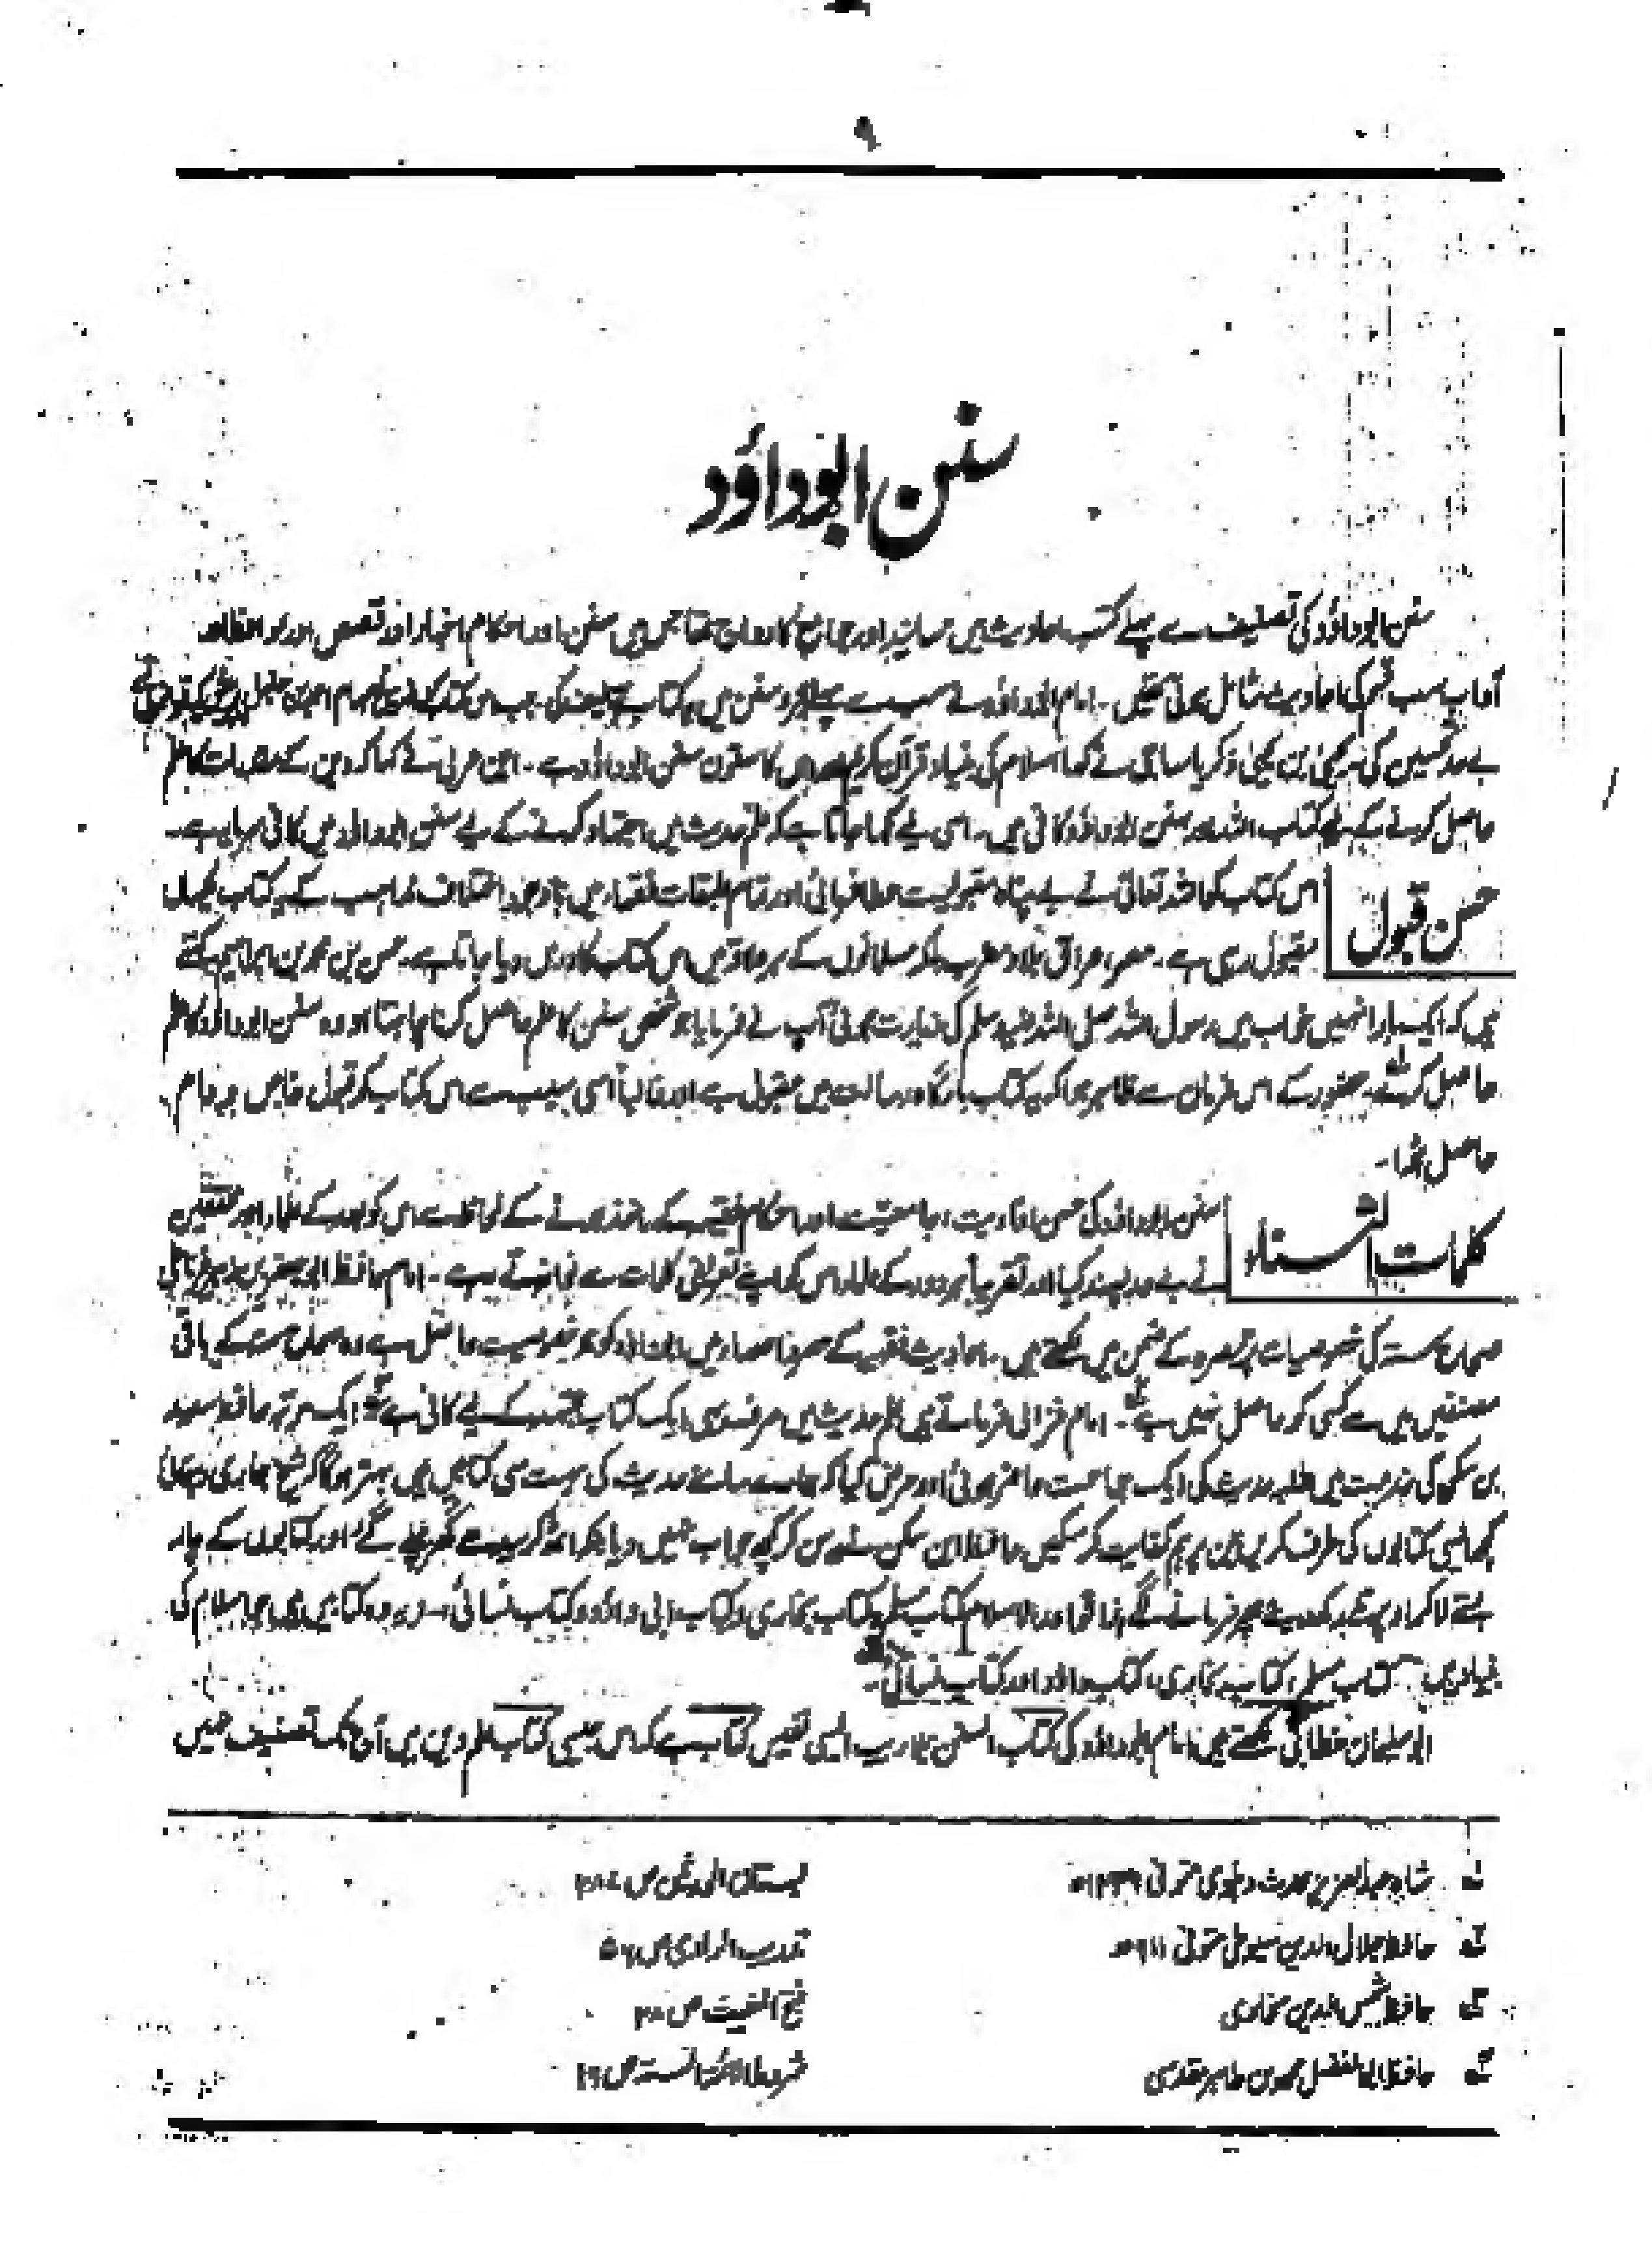 ۹
سنن ابوداؤد
سنن ابوداؤد کی تصنیف سے پہلے کتب احادیث میں مسانید اور جوامع کا رواج تھا جس میں سنن اور احکام اخبار اور قصص اور مواعظ اور
آداب سب قسم کی احادیث شامل ہوتی تھیں۔ امام ابوداؤد نے سب سے پہلے مجرد سنن میں یہ کتاب تصنیف کی۔ جب اس کتاب کو امام احمد بن حنبل
بے حد تحسین کی یحییٰ بن زکریا ساجی نے کہا اسلام کی بنیاد قرآن کریم اور اس کا ستون سنن ابوداؤد ہے۔ ابن عربی نے کہا کہ دین کے علم
حاصل کرنے کے لیے کتاب اللہ اور سنن ابوداؤد کافی ہیں۔ اسی لیے کہا جاتا ہے کہ علم حدیث میں اجتہاد کرنے کے لیے سنن ابوداؤد میں کافی سرمایہ ہے۔
حسن قبول
اس کتاب کو اللہ تعالیٰ نے بے پناہ مقبولیت عطا فرمائی اور تمام طبقات فقہاء میں باوجود اختلاف مذاہب کے یہ کتاب یکساں
مقبول رہی ہے۔ مصر، عراق بلاد مغرب بلکہ مسلمانوں کے ہر علاقہ میں اس کتاب کا درس دیا جاتا ہے۔ حسن بن محمد بن ابراہیم کہتے
ہیں کہ ایک بار انہیں خواب میں رسول اللہ صلی اللہ علیہ وسلم کی زیارت ہوئی آپ نے فرمایا جو شخص سنن کا علم حاصل کرنا چاہتا ہو وہ سنن ابوداؤد کا علم
حاصل کرے۔ حضور کے اس فرمان سے ظاہر ہوا کہ یہ کتاب بارگاہ رسالت میں مقبول ہے اور غالباً اسی سبب سے اس کتاب کو قبول خاص و عام
حاصل ہوا۔
کلمات الثناء
سنن ابوداؤد کی حسن افادیت، جامعیت اور احکام فقہیہ کے ماخذ ہونے کے لحاظ سے اس کو بعد کے علماء اور محققین
نے بے حد پسند کیا اور تقریباً ہر دور کے علماء اس کو اپنے تعریفی کلمات سے نوازتے رہے۔ امام حافظ ابو جعفر بن زبیر غرناطی
صحاح ستہ کی خصوصیات پر تبصرہ کے ضمن میں لکھتے ہیں۔ احادیث فقہیہ کے حصر میں ابوداؤد کو جو خصوصیت حاصل ہے وہ صحاح ستہ کے باقی
مصنفین میں سے کسی کو حاصل نہیں ہے۔ امام غزالی فرماتے ہیں علم حدیث میں صرف یہی ایک کتاب مجتہد کے لیے کافی ہے۔ ایک مرتبہ حافظ سعید
بن سکن کی خدمت میں طلبہ حدیث کی ایک جماعت حاضر ہوئی اور عرض کیا کہ ہمارے سامنے حدیث کی بہت سی کتابیں ہیں بہتر ہوگا کہ شیخ ہماری رہنمائی
کچھ ایسی کتابوں کی طرف کریں جن پر ہم کفایت کر سکیں۔ حافظ ابن سکن نے یہ سن کر کچھ جواب نہیں دیا بلکہ اٹھ کر سیدھے گھر چلے گئے اور کتابوں کے چار
بستے لا کر اوپر تلے رکھ دیے پھر فرمانے لگے کتاب مسلم و کتاب بخاری و کتاب ابی داؤد و کتاب نسائی۔ یہ وہ کتابیں ہیں جو اسلام کی
بنیاد ہیں، کتاب مسلم، کتاب بخاری، کتاب داؤد اور کتاب نسائی۔
ابو سلیمان خطابی لکھتے ہیں امام ابوداؤد کی کتاب السنن بلاریب ایسی نفیس کتاب ہے کہ اس جیسی کتاب علم دین میں آج تک تصنیف نہیں
شاہ عبدالعزیز محدث دہلوی متوفی ۱۲۳۹ھ بستان المحدثین ص
حافظ جلال الدین سیوطی متوفی ۹۱۱ھ تدریب الراوی ص ۵۶
حافظ شمس الدین سخاوی فتح المغیث ص ۲۸
حافظ ابو الفضل محمد بن طاہر مقدسی شروط الائمۃ الستہ ص ۱۶